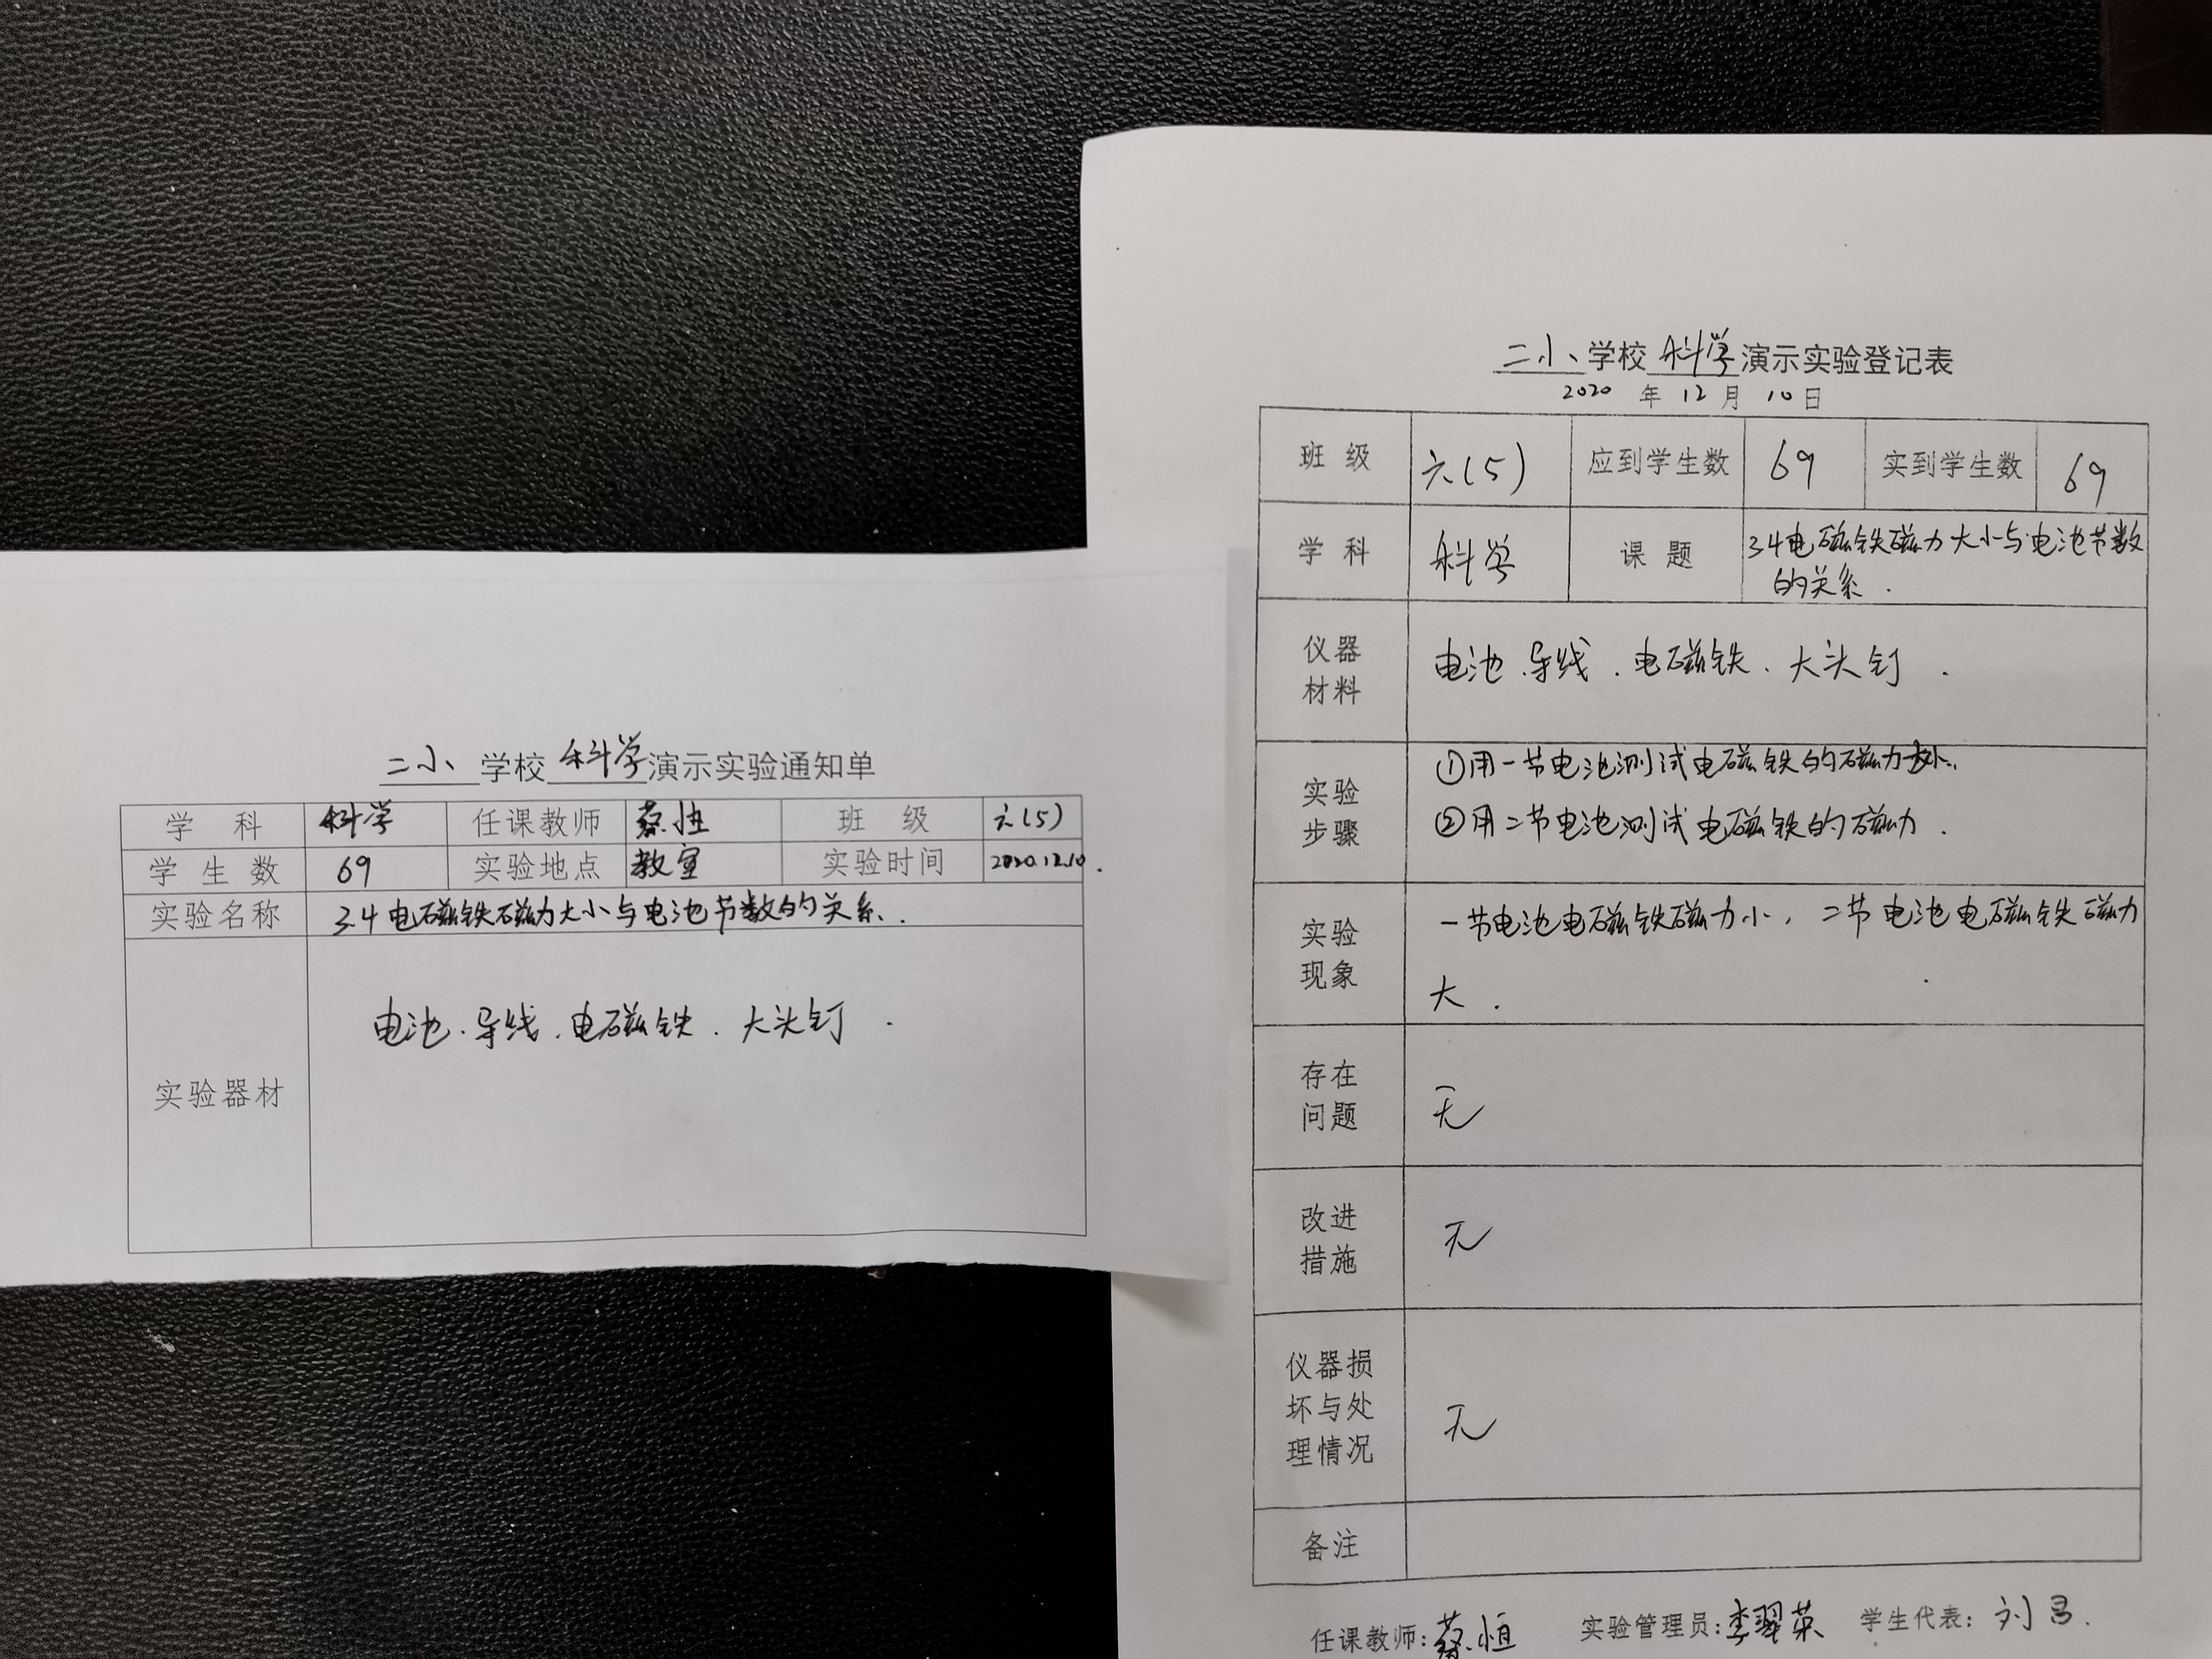 二小 学校 科学 演示实验通知单
学 科 科学 任课教师 蔡恒 班 级 六(5)
学 生 数 69 实验地点 教室 实验时间 2020.12.10.
实验名称 3.4电磁铁磁力大小与电池节数的关系.
实验器材 电池.导线.电磁铁.大头钉.
二小 学校 科学 演示实验登记表
2020 年 12 月 10 日
班 级 六(5) 应到学生数 69 实到学生数 69
学 科 科学 课 题 3.4电磁铁磁力大小与电池节数
的关系.
仪器
材料
电池.导线.电磁铁.大头钉.
实验
步骤
①用一节电池测试电磁铁的磁力
②用二节电池测试电磁铁的磁力.
实验
现象
一节电池电磁铁磁力小,二节电池电磁铁磁力
大.
存在
问题
无
改进
措施
无
仪器损
坏与处
理情况
无
备注
任课教师:蔡恒 实验管理员:李翠英 学生代表:刘